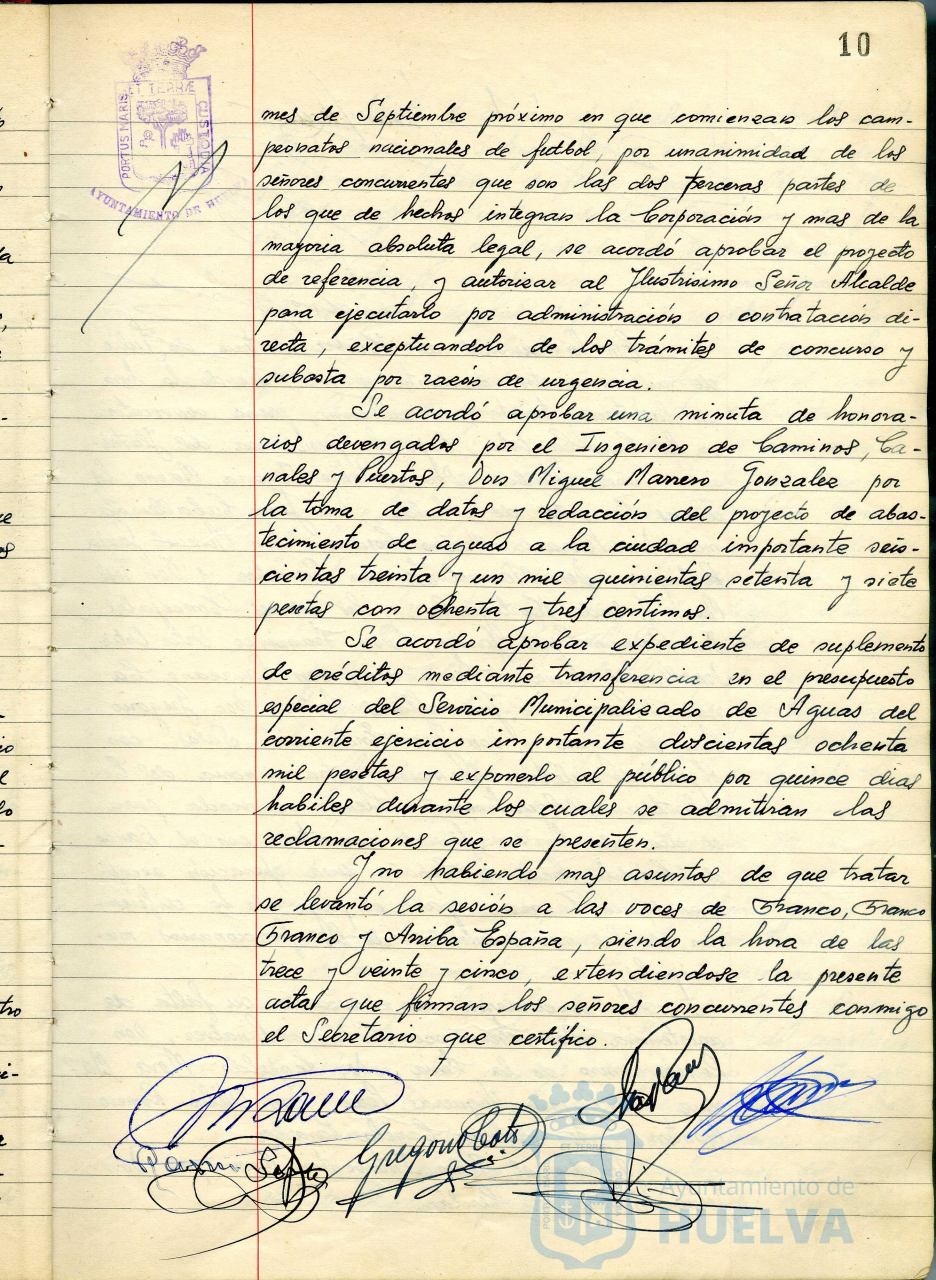 10
PORTUS MARIS
ET TERRÆ
CUSTODIA
AYUNTAMIENTO DE
mes de Septiembre próximo en que comienzan los cam-
peonatos nacionales de futbol, por unanimidad de los
señores concurrentes que son las dos terceras partes de
los que de hechos integran la Corporación y mas de la
mayoria absoluta legal, se acordó aprobar el proyecto
de referencia, y autorizar al Ilustrisimo Señor Alcalde
para ejecutarlo por administración o contratación di-
recta, exceptuandolo de los trámites de concurso y
subasta por razón de urgencia.
Se acordó aprobar una minuta de honora-
rios devengados por el Ingeniero de Caminos, Ca-
nales y Puertos, Don Miguel Marrero Gonzalez por
la toma de datos y redacción del proyecto de abas-
tecimiento de aguas a la ciudad importante seis-
cientas treinta y un mil quinientas setenta y siete
pesetas con ochenta y tres centimos.
Se acordó aprobar expediente de suplemento
de créditos mediante transferencia en el presupuesto
especial del Servicio Municipalizado de Aguas del
corriente ejercicio importante doscientas ochenta
mil pesetas y exponerlo al público por quince dias
habiles durante los cuales se admitirian las
reclamaciones que se presenten.
Y no habiendo mas asuntos de que tratar
se levantó la sesión a las voces de Franco, Franco
Franco y Arriba España, siendo la hora de las
trece y veinte y cinco, extendiendose la presente
acta que firman los señores concurrentes conmigo
el Secretario que certifico.
Gregorio
Ayuntamiento de
HUELVA